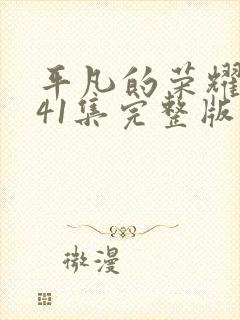 平凡的荣耀
41集完整版
微漫